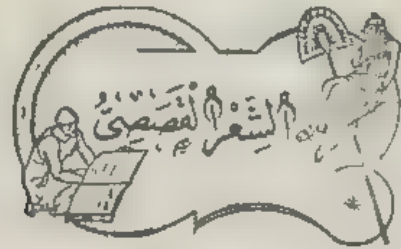 الشعر القصصي